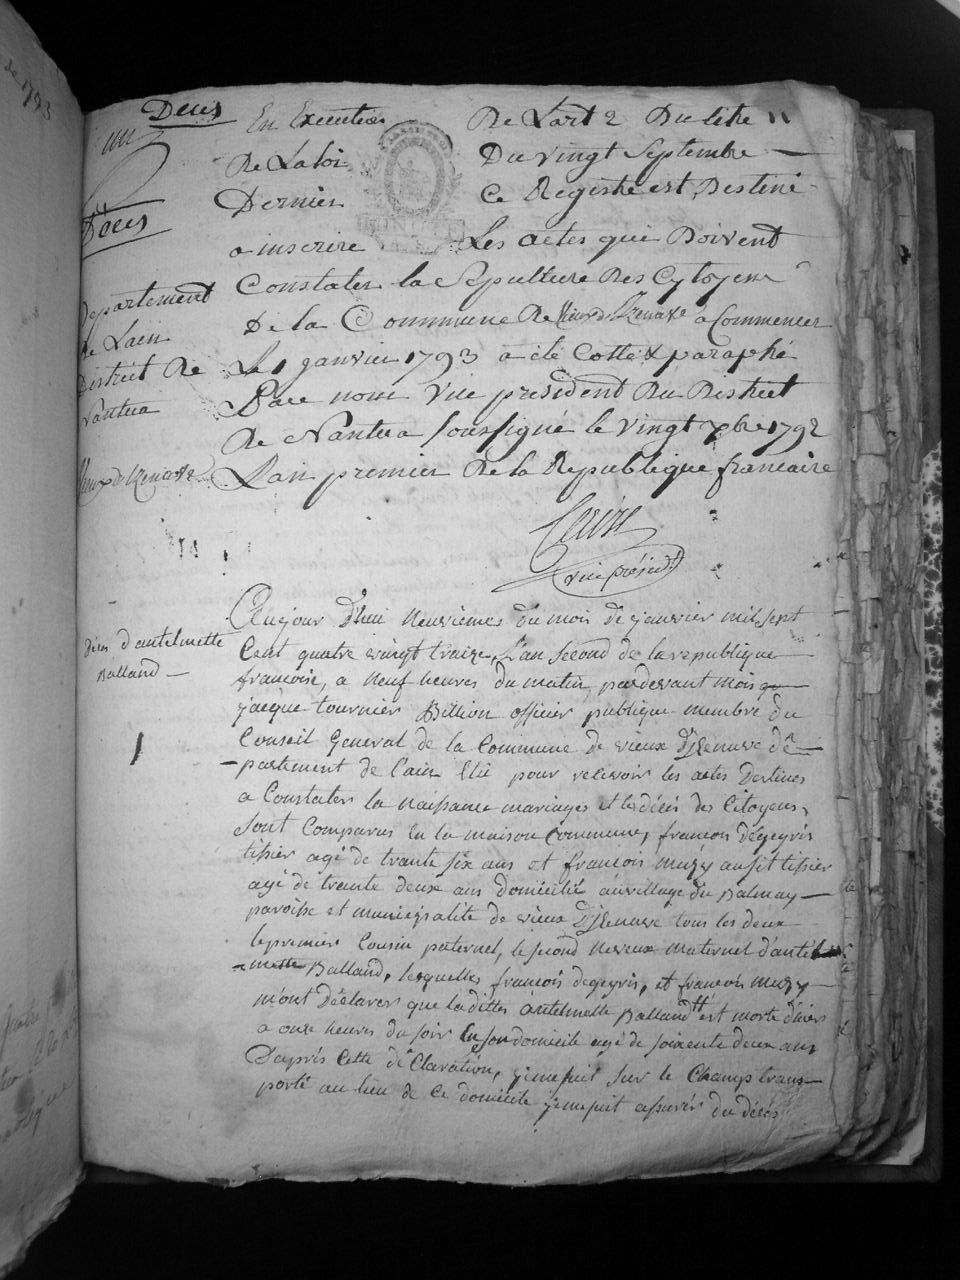 Deces
un
Deces
Departement
De Lain
District De
Nantua
Vieux d'Izenave
En Execution De Lart 2 Du titre 11
De La loi Du vingt Septembre
Dernier Ce Registre est Destiné
a inscrire Les actes qui Doivent
Constater la Sepulture Des Cytoyens
De la Commune De Vieux d'Izenave a Commencer
Le 1 janvier 1793 a été Cotté & paraphé
Par nous Vice president Du District
De Nantua soussigné le vingt xbre 1792
L'an premier De la Republique francaise
vice présidt
déces d'antelmette
Balland
1
Aujourd'hui neuvieme du mois de janvier mil sept
Cent quatre vingt traize, L'an second de la republique
francoise, a neuf heures du matin, pardevant mois
jacque tournier Billion officier publique membre du
Conseil General de la Commune de vieux d'Izenave dé-
-partement de l'ain Elü pour recevoir les actes destinés
a Constater la naissance mariages et les décés des Citoyens,
sont Comparus En la maison Commune, francois dégeyris
tissier agé de trante six ans et francois muzy aussit tissier
agé de trante deux ans domicilié au village du Balmay
paroisse et municipalité de vieux d'Izenave tous les deux
le premier Cousin paternel, le second neveux maternel d'antel-
-mette Balland, lesquelles francois degeyris, et francois muzy
m'ont déclarer que la ditte antelmette Balland est morte d'hiers
a onze heures du soir En son domicile agé de soixente deux ans
D'aprés Cette déclaration, je me suit sur le Champ trans-
porté au lieu de Ce domicile je me suit assurer du décés